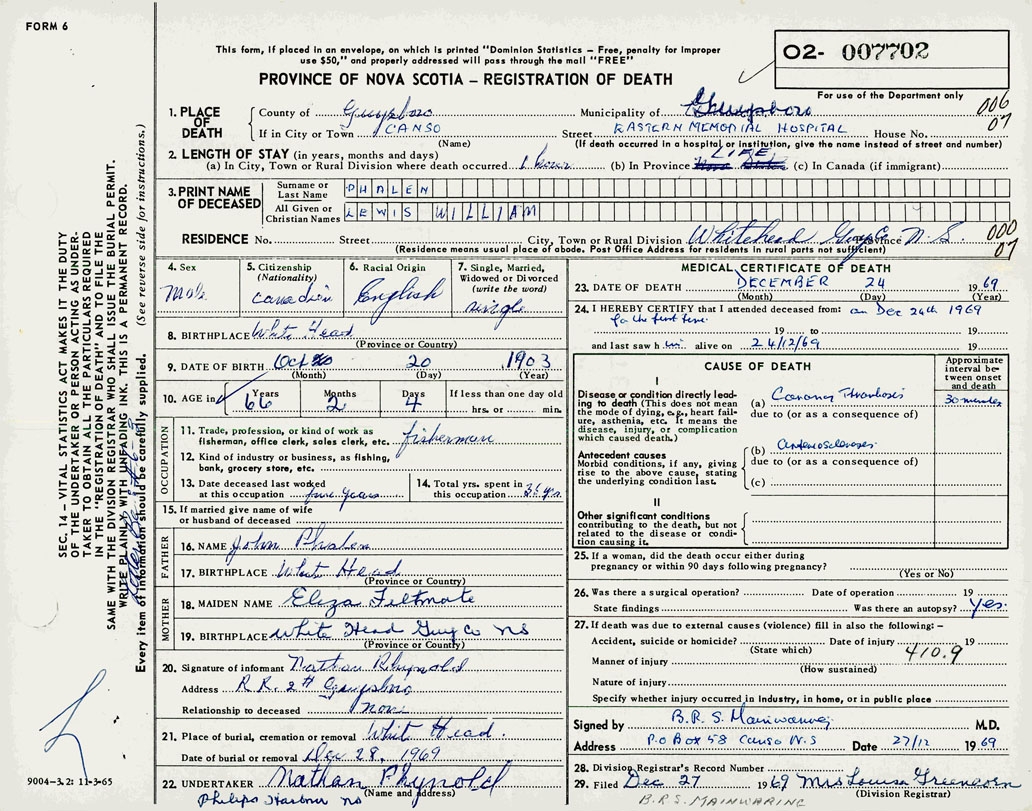 FORM 6
This form, if placed in an envelope, on which is printed "Dominion Statistics – Free, penalty for improper
use $50," and properly addressed will pass through the mail "FREE"
PROVINCE OF NOVA SCOTIA – REGISTRATION OF DEATH
O2- 007702
For use of the Department only
006
07
1. PLACE OF DEATH
County of Guysboro
Municipality of Guysboro
If in City or Town CANSO
(Name)
Street EASTERN MEMORIAL HOSPITAL House No.
(If death occurred in a hospital or institution, give the name instead of street and number)
2. LENGTH OF STAY (in years, months and days)
(a) In City, Town or Rural Division where death occurred 1 hour (b) In Province LIFE (c) In Canada (if immigrant)
3. PRINT NAME OF DECEASED
Surname or Last Name PHALEN
All Given or Christian Names LEWIS WILLIAM
RESIDENCE No. Street City, Town or Rural Division Whitehead Guy Co Province N.S.
(Residence means usual place of abode. Post Office Address for residents in rural parts not sufficient)
000
07
4. Sex
Male
5. Citizenship
(Nationality)
Canadian
6. Racial Origin
English
7. Single, Married,
Widowed or Divorced
(write the word)
single
8. BIRTHPLACE White Head
(Province or Country)
9. DATE OF BIRTH Oct 20 1903
(Month) (Day) (Year)
10. AGE in
Years Months Days If less than one day old
66 2 4 hrs. or min.
OCCUPATION
11. Trade, profession, or kind of work as
fisherman, office clerk, sales clerk, etc. fisherman
12. Kind of industry or business, as fishing,
bank, grocery store, etc.
13. Date deceased last worked
at this occupation years
14. Total yrs. spent in
this occupation
15. If married give name of wife
or husband of deceased
FATHER
16. NAME John Phalen
17. BIRTHPLACE White Head
(Province or Country)
MOTHER
18. MAIDEN NAME Eliza Feltmate
19. BIRTHPLACE White Head Guy Co NS
(Province or Country)
20. Signature of informant Nathan Rhynold
Address R R. 2# Guysboro
Relationship to deceased none
21. Place of burial, cremation or removal White Head.
Date of burial or removal Dec 28, 1969
22. UNDERTAKER Nathan Rhynold
(Name and address)
Philips Harbor NS
MEDICAL CERTIFICATE OF DEATH
23. DATE OF DEATH DECEMBER 24 1969
(Month) (Day) (Year)
24. I HEREBY CERTIFY that I attended deceased from: on Dec 24th 1969
for the first time. 19 to 19
and last saw h im alive on 24/12/69 19
CAUSE OF DEATH
Approximate
interval be-
tween onset
and death
I
Disease or condition directly lead-
ing to death (This does not mean
the mode of dying, e.g., heart fail-
ure, asthenia, etc. It means the
disease, injury, or complication
which caused death.)
(a) Coronary Thrombosis 30 minutes
due to (or as a consequence of)
Antecedent causes
Morbid conditions, if any, giving
rise to the above cause, stating
the underlying condition last.
(b) Arteriosclerosis
due to (or as a consequence of)
(c)
II
Other significant conditions
contributing to the death, but not
related to the disease or condi-
tion causing it.
25. If a woman, did the death occur either during
pregnancy or within 90 days following pregnancy?
(Yes or No)
26. Was there a surgical operation? Date of operation 19
State findings Was there an autopsy? Yes.
27. If death was due to external causes (violence) fill in also the following: –
Accident, suicide or homicide? Date of injury 19
(State which)
410.9
Manner of injury
(How sustained)
Nature of injury
Specify whether injury occurred in Industry, in home, or in public place
Signed by B.R.S. Mainwaring M.D.
Address P.O Box 58 Canso N.S Date 27/12 1969
28. Division Registrar's Record Number
29. Filed Dec 27 1969 Mrs Louisa Greencorn
(Division Registrar)
B.R.S. MAINWARING
SEC. 14 – VITAL STATISTICS ACT MAKES IT THE DUTY
OF THE UNDERTAKER OR PERSON ACTING AS UNDER-
TAKER TO OBTAIN ALL THE PARTICULARS REQUIRED
IN THE "REGISTRATION OF DEATH" AND TO FILE THE
SAME WITH THE DIVISION REGISTRAR WHO SHALL ISSUE THE BURIAL PERMIT.
WRITE PLAINLY WITH UNFADING INK. THIS IS A PERMANENT RECORD.
Every item of information should be carefully supplied. (See reverse side for instructions.)
9004-3.2: 11-3-65